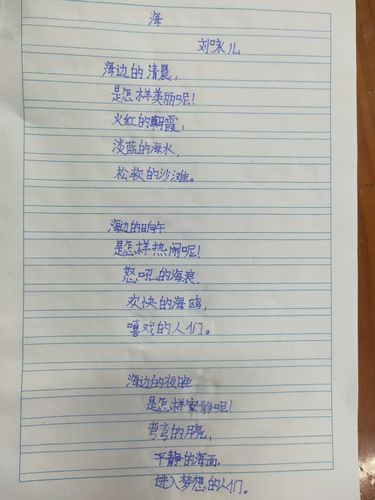 海
刘咏儿
海边的清晨,
是怎样美丽呢!
火红的朝霞,
淡蓝的海水,
松软的沙滩。
海边的晌午
是怎样热闹呢!
怒吼的海浪,
欢快的海鸥,
嘻戏的人们。
海边的夜晚
是怎样寂静呢!
弯弯的月亮,
平静的海面,
进入梦想的人们。